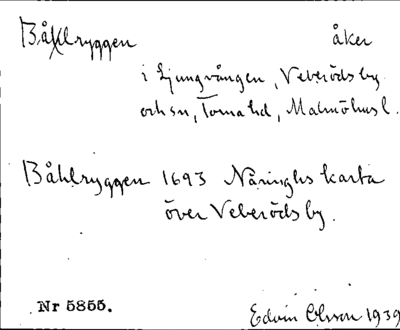 Båhlryggen åker
i Ljungvången, Veberöds by
och sn, Torna hd, Malmöhus l.
Båhlryggen 1693 Näringhs karta
över Veberöds by.
Nr 5855. Edvin Olsson 1939